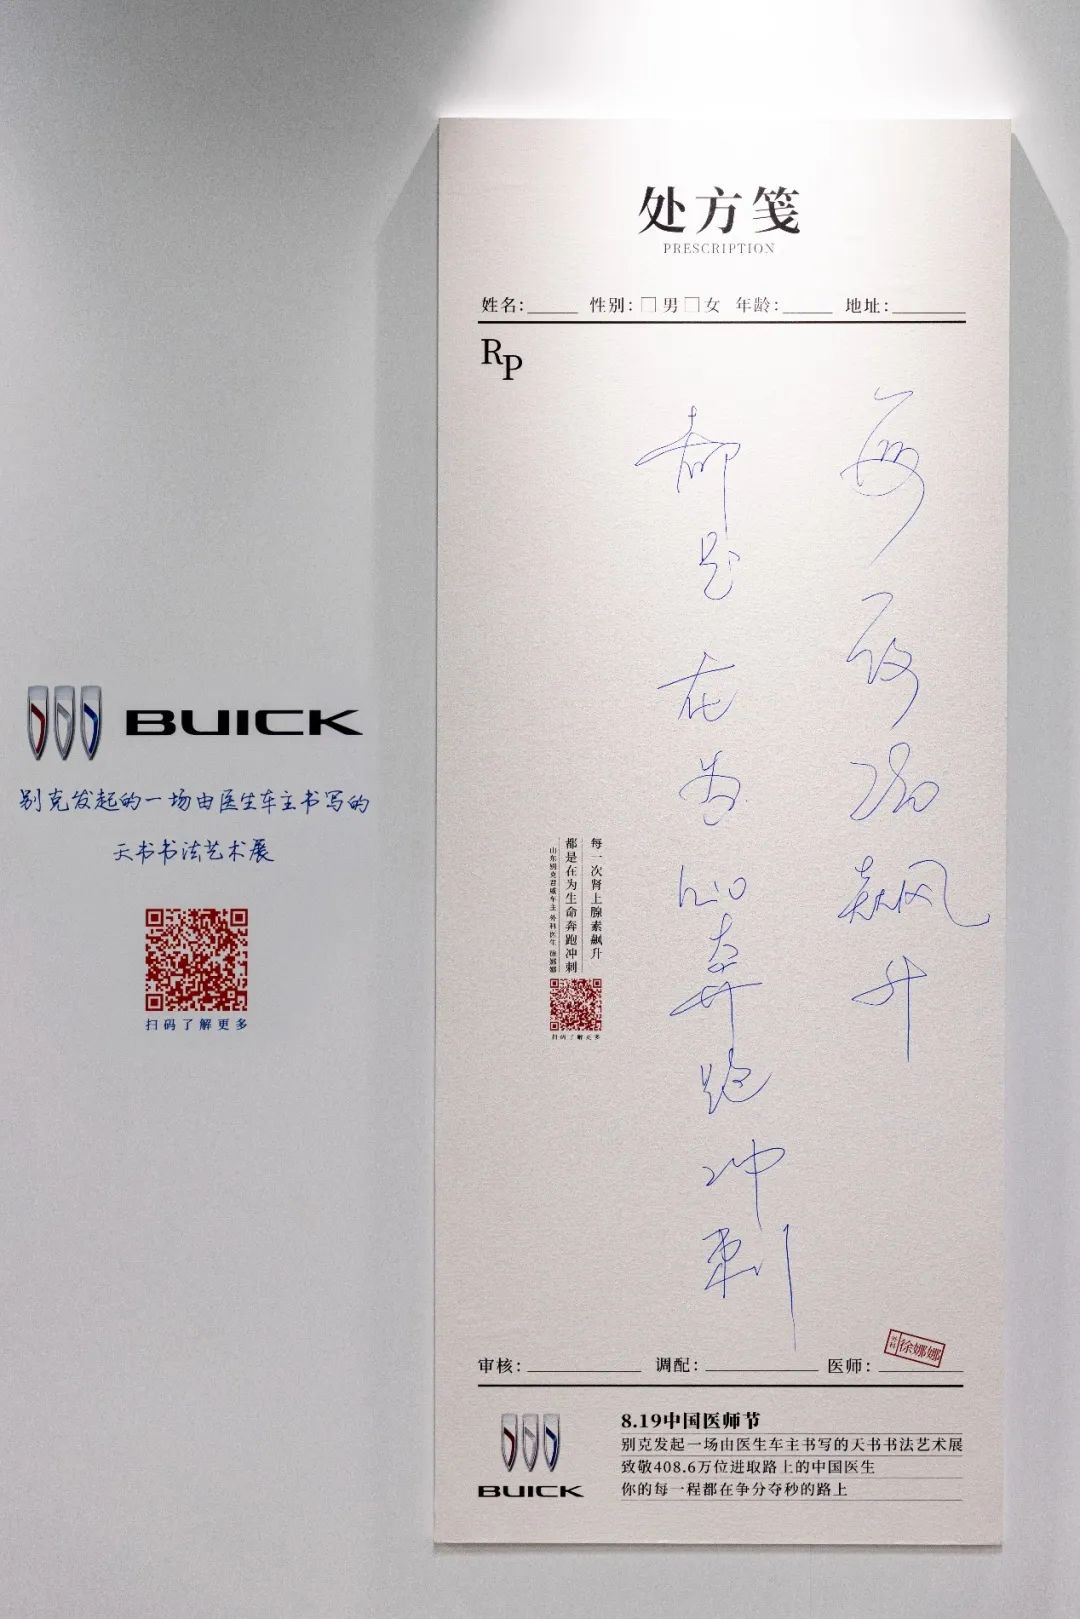 处方笺
PRESCRIPTION
姓名：_____ 性别：□男□女 年龄：_____ 地址：_______
RP
每一次飙升
都是在为生命奔跑冲刺
每一次肾上腺素飙升
都是在为生命奔跑冲刺
山东别克君威车主 外科医生 徐娜娜
扫码了解更多
BUICK
别克发起的一场由医生车主书写的
天书书法艺术展
扫码了解更多
审核：__________ 调配：__________ 医师：________
外科 徐娜娜
BUICK
8.19中国医师节
别克发起一场由医生车主书写的天书书法艺术展
致敬408.6万位进取路上的中国医生
你的每一程都在争分夺秒的路上